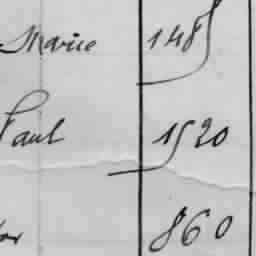 Marie 1485
Paul 1520
860